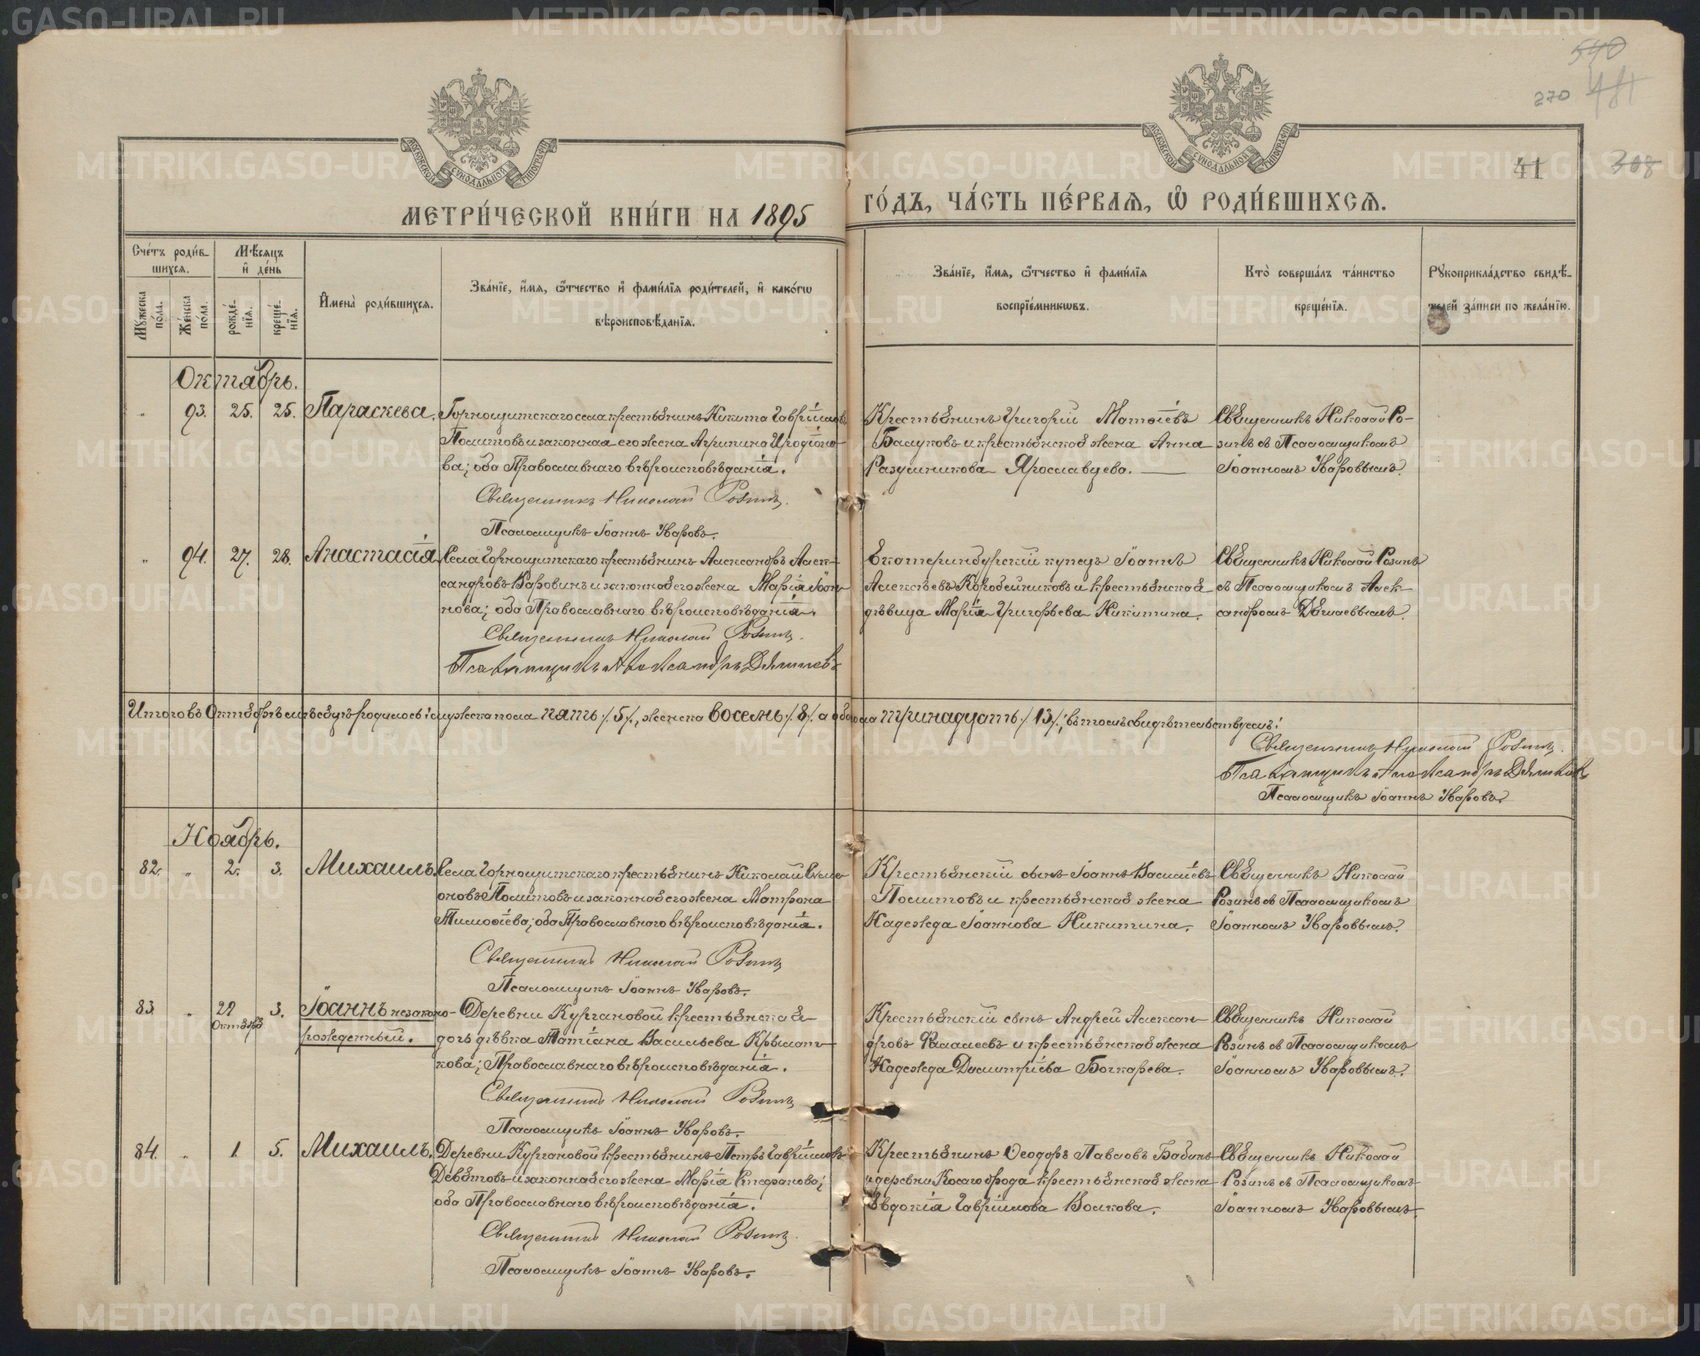 540
270 481
41 308
МЕТРИ́ЧЕСКОЙ КНИ́ГИ НА 1895 ГО́ДЪ, ЧА́СТЬ ПЕ́РВАѦ, Ѽ РОДИ́ВШИХСѦ.
Счетъ роди́вшихсѧ.
Мѣсѧцъ и҆ де́нь
Мꙋжеска по́ла.
Же́нска по́ла.
рожде́нїѧ.
креще́нїѧ.
И҆мена̀ роди́вшихсѧ.
Зва́нїе, и҆мѧ, ѻ҆́тчество и҆ фами́лїѧ роди́телей, и҆ како́гѡ
вѣроисповѣ́данїѧ.
Зва́нїе, и҆́мѧ, ѻ҆́тчество и҆ фами́лїѧ
воспрїе́мникѡвъ.
Кто̀ соверша́лъ та́инство
креще́нїѧ.
Рꙋкоприкла́дство свидѣ́-
телей за́писи по жела́нїю.
Октябрь.
" 93. 25. 25. Параскева.
Горнощитскаго села крестьянинъ Никита Гавріиловъ
Поситовъ и законная его жена Агрипина Иродіоно-
ва; оба Православнаго вѣроисповѣданія.
Священникъ Николай Розинъ.
Псаломщикъ Іоаннъ Уваровъ.
Крестьянинъ Григорій Матѳіевъ
и крестьянская жена Анна
Ярославцева.
Священникъ Николай Ро-
зинъ съ Псаломщикомъ
Іоанномъ Уваровымъ.
" 94. 27. 28. Анастасія
Села Горнощитскаго крестьянинъ Александръ Алек-
сандровъ и законная его жена Марія Іоан-
нова; оба Православнаго вѣроисповѣданія.
Священникъ Николай Розинъ.
Псаломщикъ Александръ
Екатеринбургскій купецъ Іоаннъ
Алексѣевъ Коробейниковъ и крестьянская
дѣвица Марія Григорьева Никитина.
Священникъ Николай Розинъ
съ Псаломщикомъ Алек-
сандромъ
Итого въ Октябрѣ мѣсяцѣ родилось: мужеска пола пять /5/, женска восемь /8/ а обоего пола тринадцать /13/, въ томъ свидѣтельствуемъ:
Священникъ Николай Розинъ.
Псаломщикъ Александръ
Псаломщикъ Іоаннъ Уваровъ.
Ноябрь.
82. " 2. 3. Михаилъ.
Села Горнощитскаго крестьянинъ Николай Симе-
оновъ Поситовъ и законная его жена Матрона
Тимоѳіева; оба Православнаго вѣроисповѣданія.
Священникъ Николай Розинъ
Псаломщикъ Іоаннъ Уваровъ.
Крестьянскій сынъ Іоаннъ Василіевъ
Поситовъ и крестьянская жена
Надежда Іоаннова Никитина.
Священникъ Николай
Розинъ съ Псаломщикомъ
Іоанномъ Уваровымъ.
83 " 29 Октября 3. Іоаннъ незаконо-
рожденный.
Деревни Кургановой крестьянская
дочь дѣвка Татіана Васильева Крылат-
кова; Православнаго вѣроисповѣданія.
Священникъ Николай Розинъ
Псаломщикъ Іоаннъ Уваровъ.
Крестьянскій сынъ Андрей Алексан-
дровъ и крестьянская жена
Надежда Димитріева Бочкарева.
Священникъ Николай
Розинъ съ Псаломщикомъ
Іоанномъ Уваровымъ.
84. " 1 5. Михаилъ.
Деревни Кургановой крестьянинъ Петръ Гавріиловъ
Девятовъ и законная его жена Марія Стефанова;
оба Православнаго вѣроисповѣданія.
Священникъ Николай Розинъ.
Псаломщикъ Іоаннъ Уваровъ.
Крестьянинъ Ѳеодоръ Павловъ Бабинъ
и деревни Косагоброда крестьянская жена
Евдокія Гавріилова Волкова.
Священникъ Николай
Розинъ съ Псаломщикомъ
Іоанномъ Уваровымъ.
METRIKI.GASO-URAL.RU